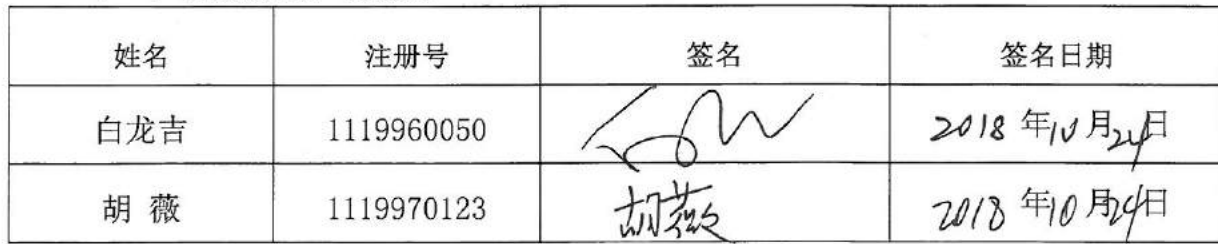 姓名 注册号 签名 签名日期
白龙吉 1119960050 2018 年10月24日
胡 薇 1119970123 胡薇 2018 年10月24日